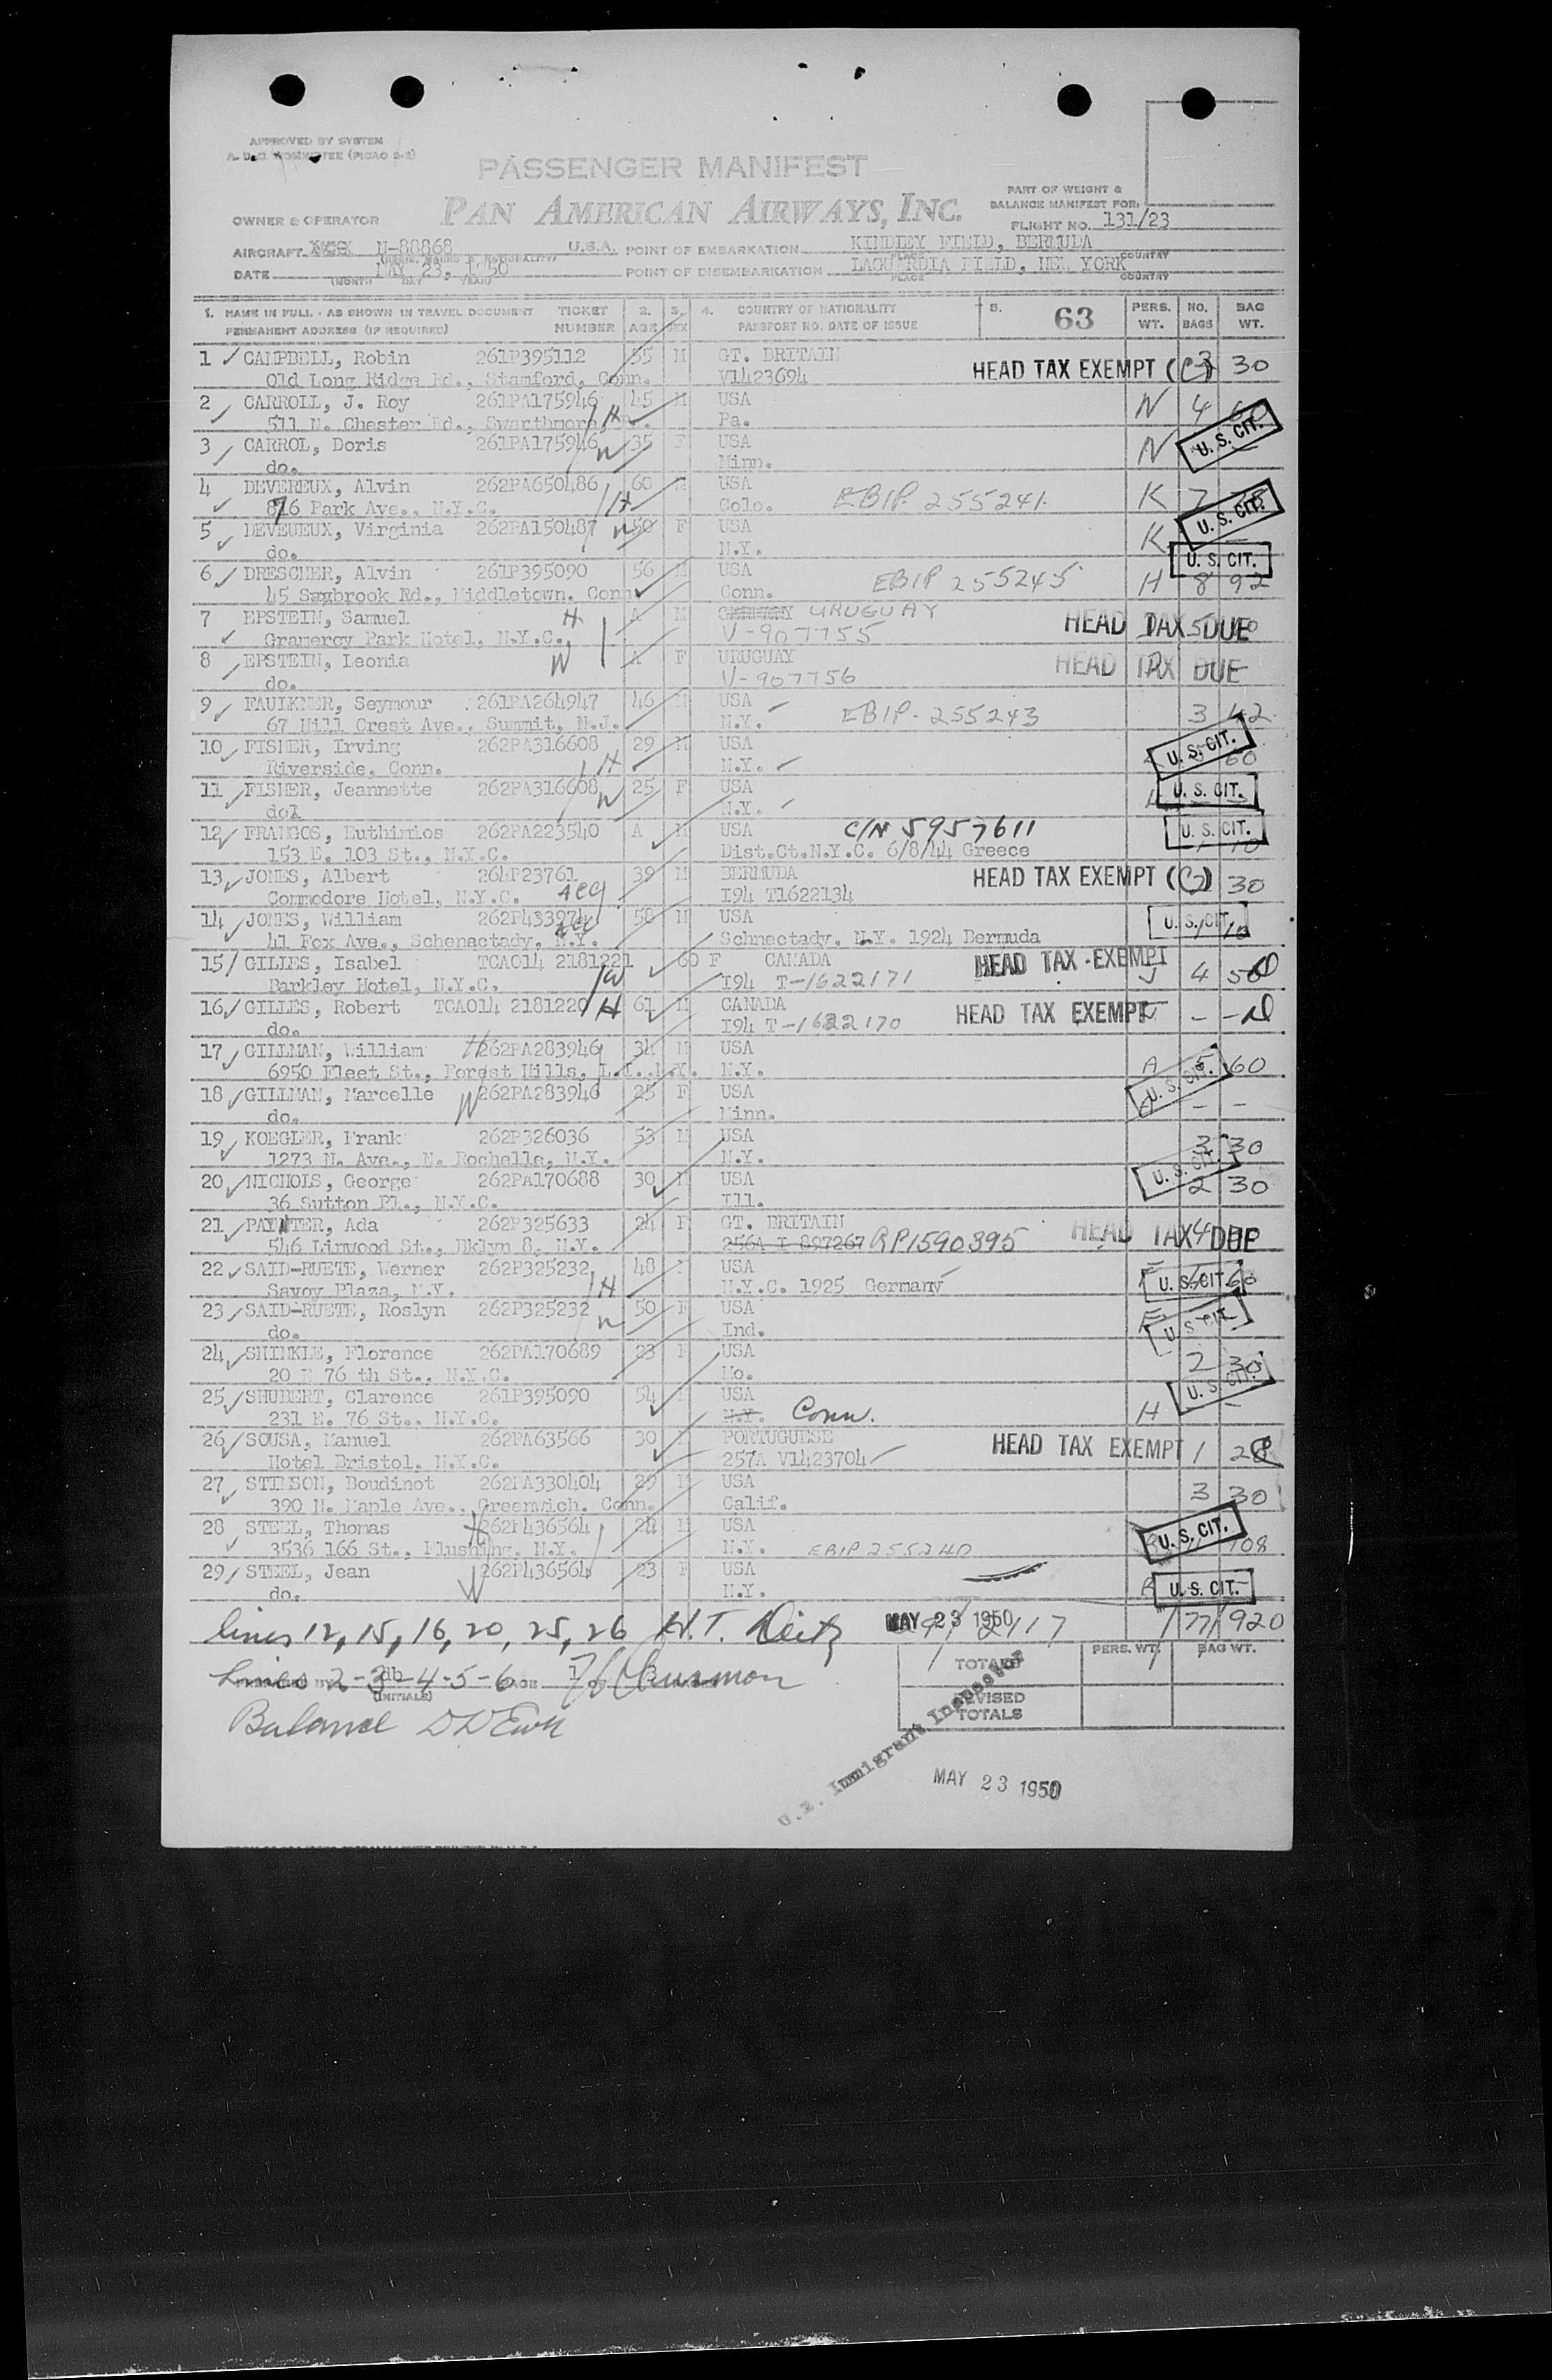 APPROVED BY SYSTEM
A. D. C. COMMITTEE (PICAO 2-2)
PASSENGER MANIFEST
PAN AMERICAN AIRWAYS, INC.
PART OF WEIGHT &
BALANCE MANIFEST FOR:
FLIGHT NO. 131/23
OWNER & OPERATOR
AIRCRAFT N-88868 U.S.A. POINT OF EMBARKATION KINDLEY FIELD, BERMUDA
PLACE COUNTRY
DATE MAY 23, 1950 POINT OF DISEMBARKATION LAGUARDIA FIELD, NEW YORK
(MONTH DAY YEAR) PLACE COUNTRY
1. NAME IN FULL - AS SHOWN IN TRAVEL DOCUMENT TICKET 2. 3. 4. COUNTRY OF NATIONALITY 5. 63 PERS. NO. BAG
PERMANENT ADDRESS (IF REQUIRED) NUMBER AGE SEX PASSPORT NO. DATE OF ISSUE WT. BAGS WT.
1 CAMPBELL, Robin 261P395112 55 M GT. BRITAIN HEAD TAX EXEMPT (C) 3 30
Old Long Ridge Rd., Stamford, Conn. V1423694
2 CARROLL, J. Roy 261PA175946 45 M USA N 4 60
511 N. Chester Rd., Swarthmore, H Pa.
3 CARROL, Doris 261PA175946 W 35 F USA N U. S. CIT.
do. Minn.
4 DEVEREUX, Alvin 262PA650486 60 M USA EBIP 255241 K 7
876 Park Ave., N.Y.C. H Colo.
5 DEVEUEUX, Virginia 262PA150487 W 50 F USA K U. S. CIT.
do. N.Y.
6 DRESCHER, Alvin 261P395090 56 M USA EBIP 255245 H 8 92 U. S. CIT.
45 Saybrook Rd., Middletown. Conn Conn.
7 EPSTEIN, Samuel H A M URUGUAY HEAD TAX DUE
Gramercy Park Hotel, N.Y.C. V-907755
8 EPSTEIN, Leonia W A F URUGUAY HEAD TAX DUE
do. V-907756
9 FAULKNER, Seymour 261PA264947 46 M USA EBIP-255243 3 42
67 Hill Crest Ave., Summit, N.J. N.Y.
10 FISHER, Irving 262PA316608 29 M USA U. S. CIT. 60
Riverside, Conn. H N.Y.
11 FISHER, Jeannette 262PA316608 W 25 F USA U. S. CIT.
dol N.Y.
12 FRANGOS, Euthimios 262PA223540 A M USA C/N 5957611 U. S. CIT. 1 10
153 E. 103 St., N.Y.C. Dist.Ct.N.Y.C. 6/8/44 Greece
13 JONES, Albert 264P23761 39 M BERMUDA HEAD TAX EXEMPT (C) 30
Commodore Hotel, N.Y.C. I94 T1622134
14 JONES, William 262P433974 58 M USA U. S. CIT. 1 10
41 Fox Ave., Schenactady, N.Y. Schnectady, N.Y. 1924 Bermuda
15 GILLES, Isabel TCA014 2181221 60 F CANADA HEAD TAX EXEMPT J 4 50
Barkley Hotel, N.Y.C. W I94 T-1622171
16 GILLES, Robert TCA014 2181220 H 61 M CANADA HEAD TAX EXEMPT - -
do. I94 T-1622170
17 GILLMAN, William H 262PA283946 34 M USA A 5 60
6950 Fleet St., Forest Hills, L.I. N.Y. N.Y.
18 GILLMAN, Marcelle W 262PA283946 25 F USA U. S. CIT. - -
do. Minn.
19 KOEGLER, Frank 262P326036 53 M USA 3 30
1273 N. Ave., N. Rochelle, N.Y. N.Y.
20 NICHOLS, George 262PA170688 30 M USA U. S. CIT. 2 30
36 Sutton Pl., N.Y.C. Ill.
21 PAYNTER, Ada 262P325633 24 F GT. BRITAIN HEAD TAX DUE 4
546 Linwood St., Bklyn 8, N.Y. 256A I 897267 RP1590395
22 SAID-RUETE, Werner 262P325232 48 USA U. S. CIT. 60
Savoy Plaza, N.Y. H N.Y.C. 1925 Germany
23 SAID-RUETE, Roslyn 262P325232 W 50 F USA U. S. CIT.
do. Ind.
24 SHINKLE, Florence 262PA170689 23 F USA 2 30
20 E 76 th St., N.Y.C. Mo.
25 SHUBERT, Clarence 261P395090 54 USA H U. S. CIT. -
231 E. 76 St., N.Y.C. N.Y. Conn.
26 SOUSA, Manuel 262PA63566 30 PORTUGUESE HEAD TAX EXEMPT 1 28
Hotel Bristol, N.Y.C. 257A V1423704
27 STIMSON, Boudinot 262PA330404 29 M USA 3 30
390 N. Maple Ave., Greenwich. Conn. Calif.
28 STEEL, Thomas H 262P436564 24 M USA U. S. CIT. 108
3536 166 St., Flushing, N.Y. N.Y. EBIP 255240
29 STEEL, Jean W 262P436564 23 F USA R U. S. CIT.
do. N.Y.
lines 12, 15, 16, 20, 25, 26 H.T. Deitz MAY 23 1950 2117 77 920
Lines 2-3-4-5-6
(INITIALS)
TOTALS PERS. WT. BAG WT.
REVISED
TOTALS
Balance
U.S. Immigrant Inspector
MAY 23 1950